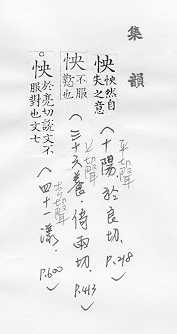 集韻
怏 怏然自失之意
平聲
︿十陽・於良切・P.218
怏 不服懟也
上聲
︿三十六養・倚兩切・P.413
。怏 於亮切說文不服對也文七
去聲
︿四十一漾・P.600